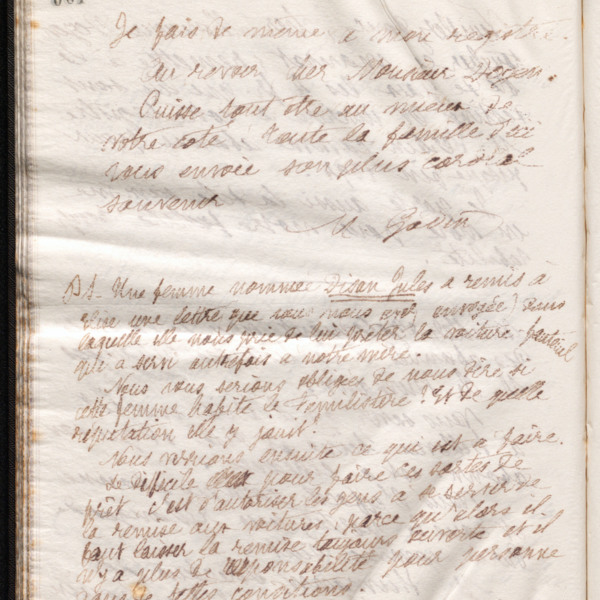 Je fais de meme a mon registre.
Au revoir cher Monsieur Doyen.
Puisse tout etre au mieux de
votre coté. Toute la famille d'ici
vous envoie son plus cordial
souvenir
M Godin
P.S. Une femme nommée Disan Jules a remis à
une lettre que vous nous avez envoyée) dans
laquelle elle nous prie de lui prêter la voiture fauteuil
qui a servi autrefois a notre mère.
Nous vous serions obligés de nous dire si
cette femme habite le Familistère ? Et de quelle
réputation elle y jouit.
Nous verrons ensuite ce qui est à faire.
Le difficile pour faire ces sortes de
prêt, c'est d'autoriser les gens a se servir de
la remise aux voitures, parce qu'alors il
faut laisser la remise toujours ouverte et il
n'y a plus de responsabilité pour personne
dans de telles conditions.